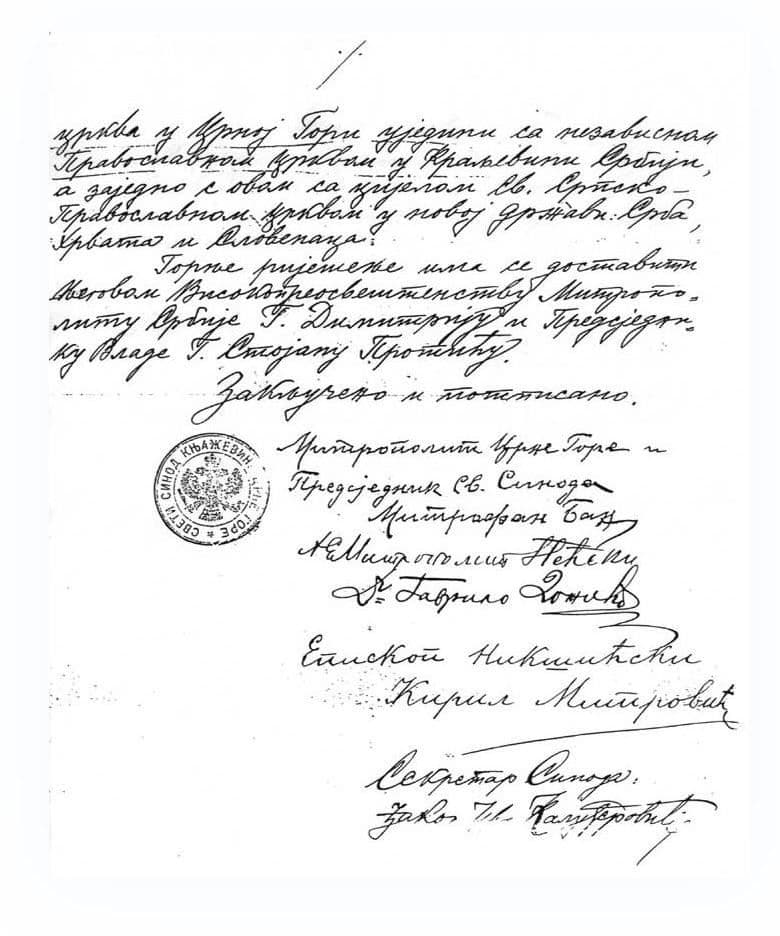 ·/·
црква у Црној Гори уједини са независном
Православном црквом у Краљевини Србији,
а заједно с овом са цијелом Св. Српско-
Православном црквом у новој држави: Срба,
Хрвата и Словенаца.
Горње ријешење има се доставити
Његовом Високопреосвештенству Митропо-
литу Србије Г. Димитрију и Предсједни-
ку Владе Г. Стојану Протићу.
Закључено и потписано.
СВЕТИ СИНОД КЊАЖЕВИН. ЦРНЕ ГОРЕ
Митрополит Црне Горе и
Предсједник Св. Синода
Митрофан Бан
Митрополит Пећски
Др Гаврило Дожић
Епископ Никшићски
Кирил Митровић
Секретар Синода:
ђакон